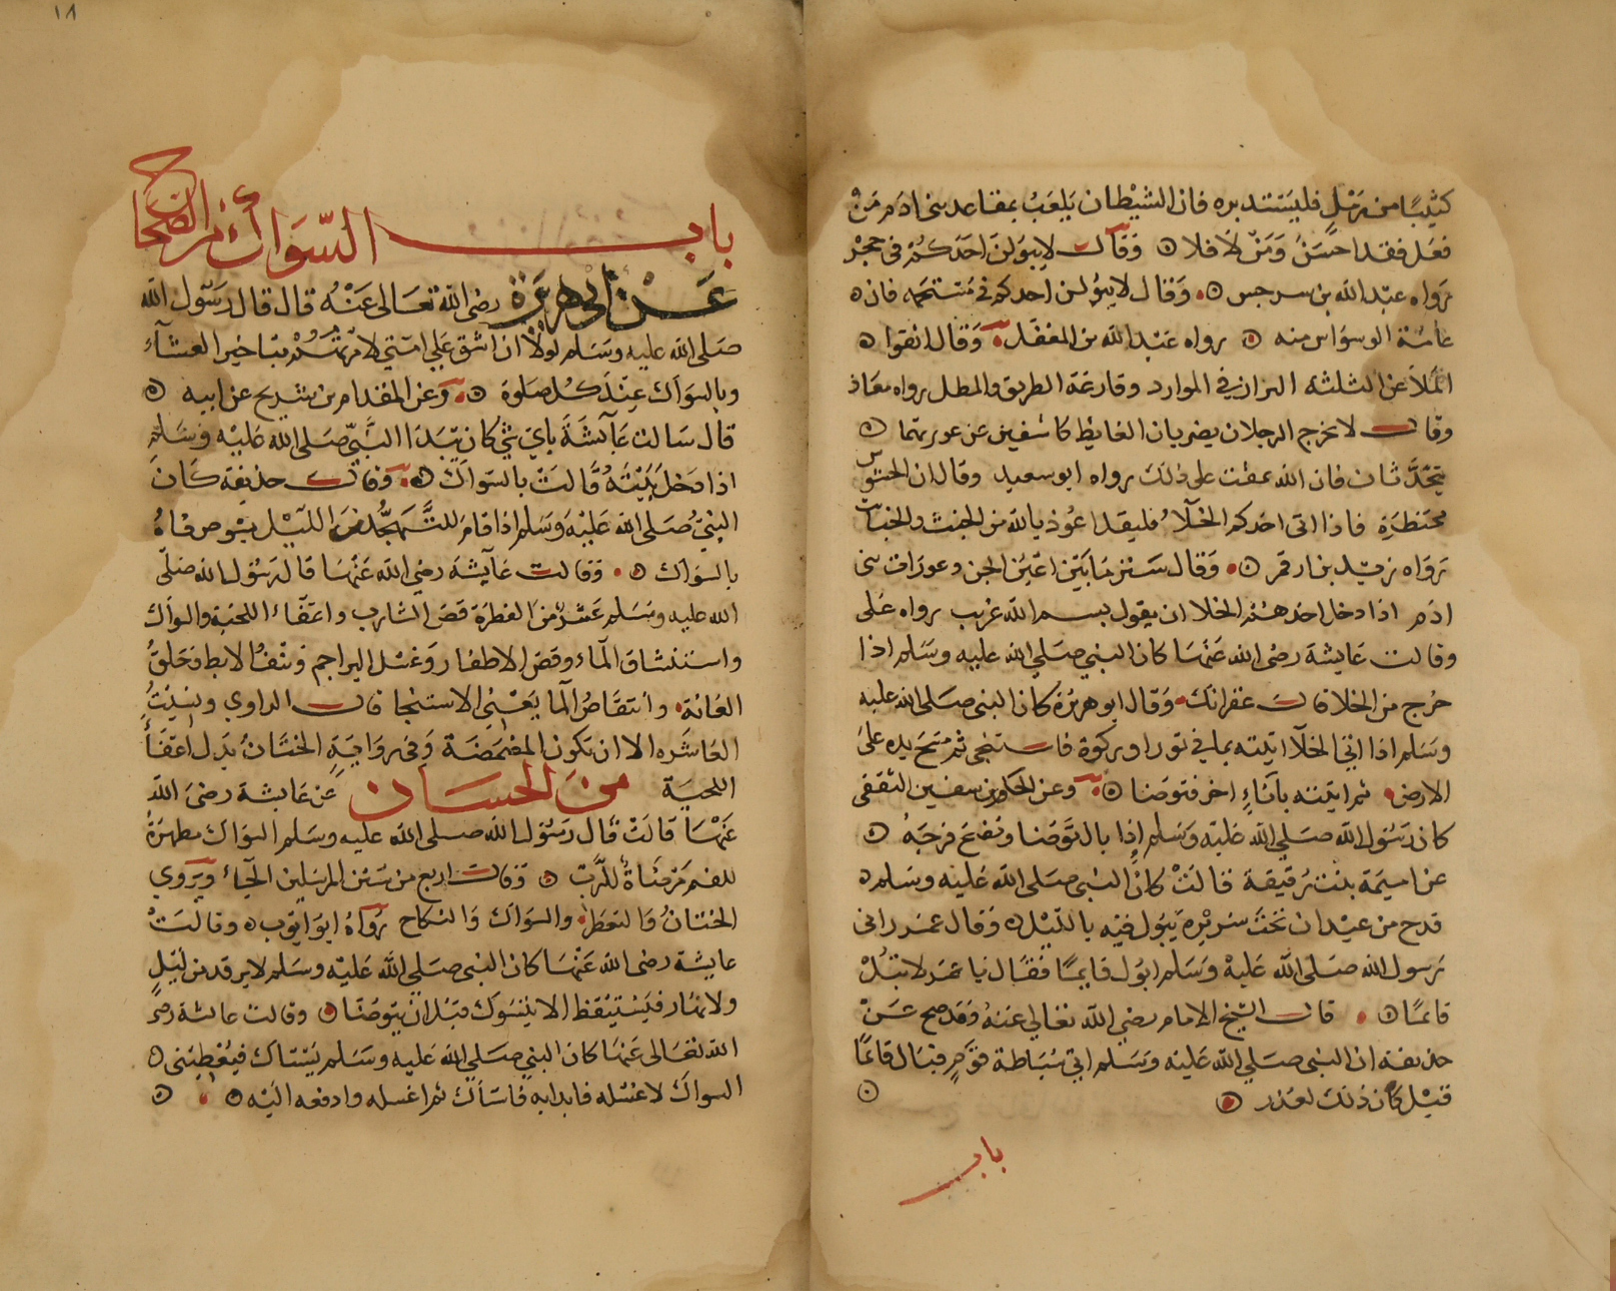 كثيبًا من رمل فليستدبره فان الشيطان يلعب بمقاعد بني ادم من
فعل فقد احسن ومن لا فلا وقال لا يبولن احدكم في جحر
رواه عبد الله بن سرجس وقال لا يبولن احدكم في مستحمه فان
عامة الوسواس منه رواه عبد الله بن المغفل وقال اتقوا
الملاعن الثلثه البراز في الموارد وقارعة الطريق والظل رواه معاذ
وقال لا يخرج الرجلان يضربان الغايط كاشفين عن عورتهما
يتحدثان فان الله يمقت على ذلك رواه ابو سعيد وقال ان الحشوش
محتضرة فاذا اتى احدكم الخلاء فليقل اعوذ بالله من الخبث والخبايث
رواه زيد بن ارقم وقال ستر ما بين اعين الجن وعورات بني
ادم اذا دخل احدهم الخلا ان يقول بسم الله غريب رواه على
وقالت عايشة رضى الله عنها كان النبي صلى الله عليه وسلم اذا
خرج من الخلا قال غفرانك وقال ابو هريرة كان النبي صلى الله عليه
وسلم اذا اتي الخلا اتيته بما في تور او ركوة فاستنجى ثم مسح يده على
الارض ثم اتيته باناء اخر فتوضا وعن الحكم بن سفين الثقفى
كان رسول الله صلى الله عليه وسلم اذا بال توضا ونضح فرجه
عن اميمة بنت رقيقة قالت كان النبي صلى الله عليه وسلم
قدح من عيدان تحت سريره يبول فيه بالليل وقال عمر راني
رسول الله صلى الله عليه وسلم ابول قايمًا فقال يا عمر لا تبل
قائمًا قال الشيخ الامام رضي الله تعالى عنه وقد صح عن
حذيفة ان النبي صلى الله عليه وسلم اتي سباطة قوم فبال قائمًا
قيل كان ذلك لعذر
باب
١٨
باب السواك من الصحاح
عن ابي هريرة رضى الله تعالى عنه قال قال رسول الله
صلى الله عليه وسلم لولا ان اشق علي امتي لامرتهم بتاخير العشاء
وبالسواك عند كل صلوة وعن المقدام بن شريح عن ابيه
قال سالت عايشة باي شي كان يبدا النبي صلى الله عليه وسلم
اذا دخل بيته قالت بالسواك وقال حذيفة كان
النبي صلى الله عليه وسلم اذا قام للتهجد من الليل يشوص فاه
بالسواك وقالت عايشة رضي الله عنها قال رسول الله صلى
الله عليه وسلم عشر من الفطرة قص الشارب واعفاء اللحية والسواك
واستنشاق الماء وقص الاظفار وغسل البراجم ونتف الابط وحلق
العانة وانتقاص الما يعني الاستنجا قال الراوي ونسيت
العاشره الا ان تكون المضمضة وفي رواية الختان بدل اعفاء
اللحية من الحسان عن عايشة رضى الله
عنها قالت قال رسول الله صلى الله عليه وسلم السواك مطهرة
للفم مرضاة للرب وقال اربع من سنن المرسلين الحياء ويروي
الختان والتعطر والسواك والنكاح رواه ابو ايوب وقالت
عايشة رضى الله عنها كان النبي صلى الله عليه وسلم لا يرقد من ليل
ولا نهار فيستيقظ الا يتسوك قبل ان يتوضا وقالت عائشة رضى
الله تعالى عنها كان النبي صلى الله عليه وسلم يستاك فيعطيني
السواك لاغسله فابدابه فاستاك ثم اغسله وادفعه اليه